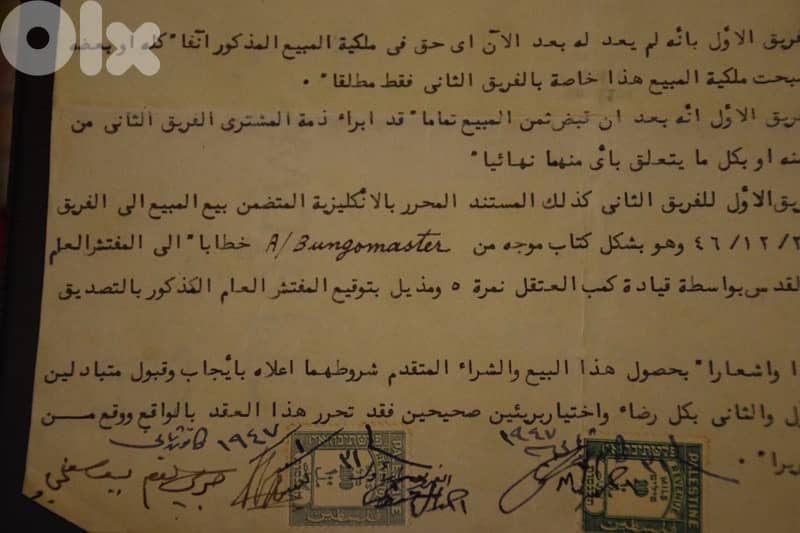 OLX
فريق الاول بانه لم يعد له بعد الآن اى حق فى ملكية المبيع المذكور آنفا" كله او بعضه
صبحت ملكية المبيع هذا خاصة بالفريق الثانى فقط مطلقا" .
ريق الاول انه بعد ان قبض ثمن المبيع تماما" قد ابراء ذمة المشترى الفريق الثانى من
منه او بكل ما يتعلق بأى منهما نهائيا"
ريق الاول للفريق الثانى كذلك المستند المحرر بالانكليزية المتضمن بيع المبيع الى الفريق
٤٦/١٢/٢ وهو بشكل كتاب موجه من A/Bungomaster خطابا" الى المفتش العلم
لقدس بواسطة قيادة كمب العتقل نمرة ٥ ومذيل بتوقيع المفتش العام المذكور بالتصديق
ا واشعارا" بحصول هذا البيع والشراء المتقدم شروطهما اعلاه بأيجاب وقبول متبادلين
ول والثانى بكل رضاء واختيار بريئين صحيحين فقد تحرر هذا العقد بالواقع ووقع من
يرا" .
١٩٤٧
١٩٤٧
PALESTINE
REVENUE
100 MILS
فلسطين
PALESTINE
فلسطين